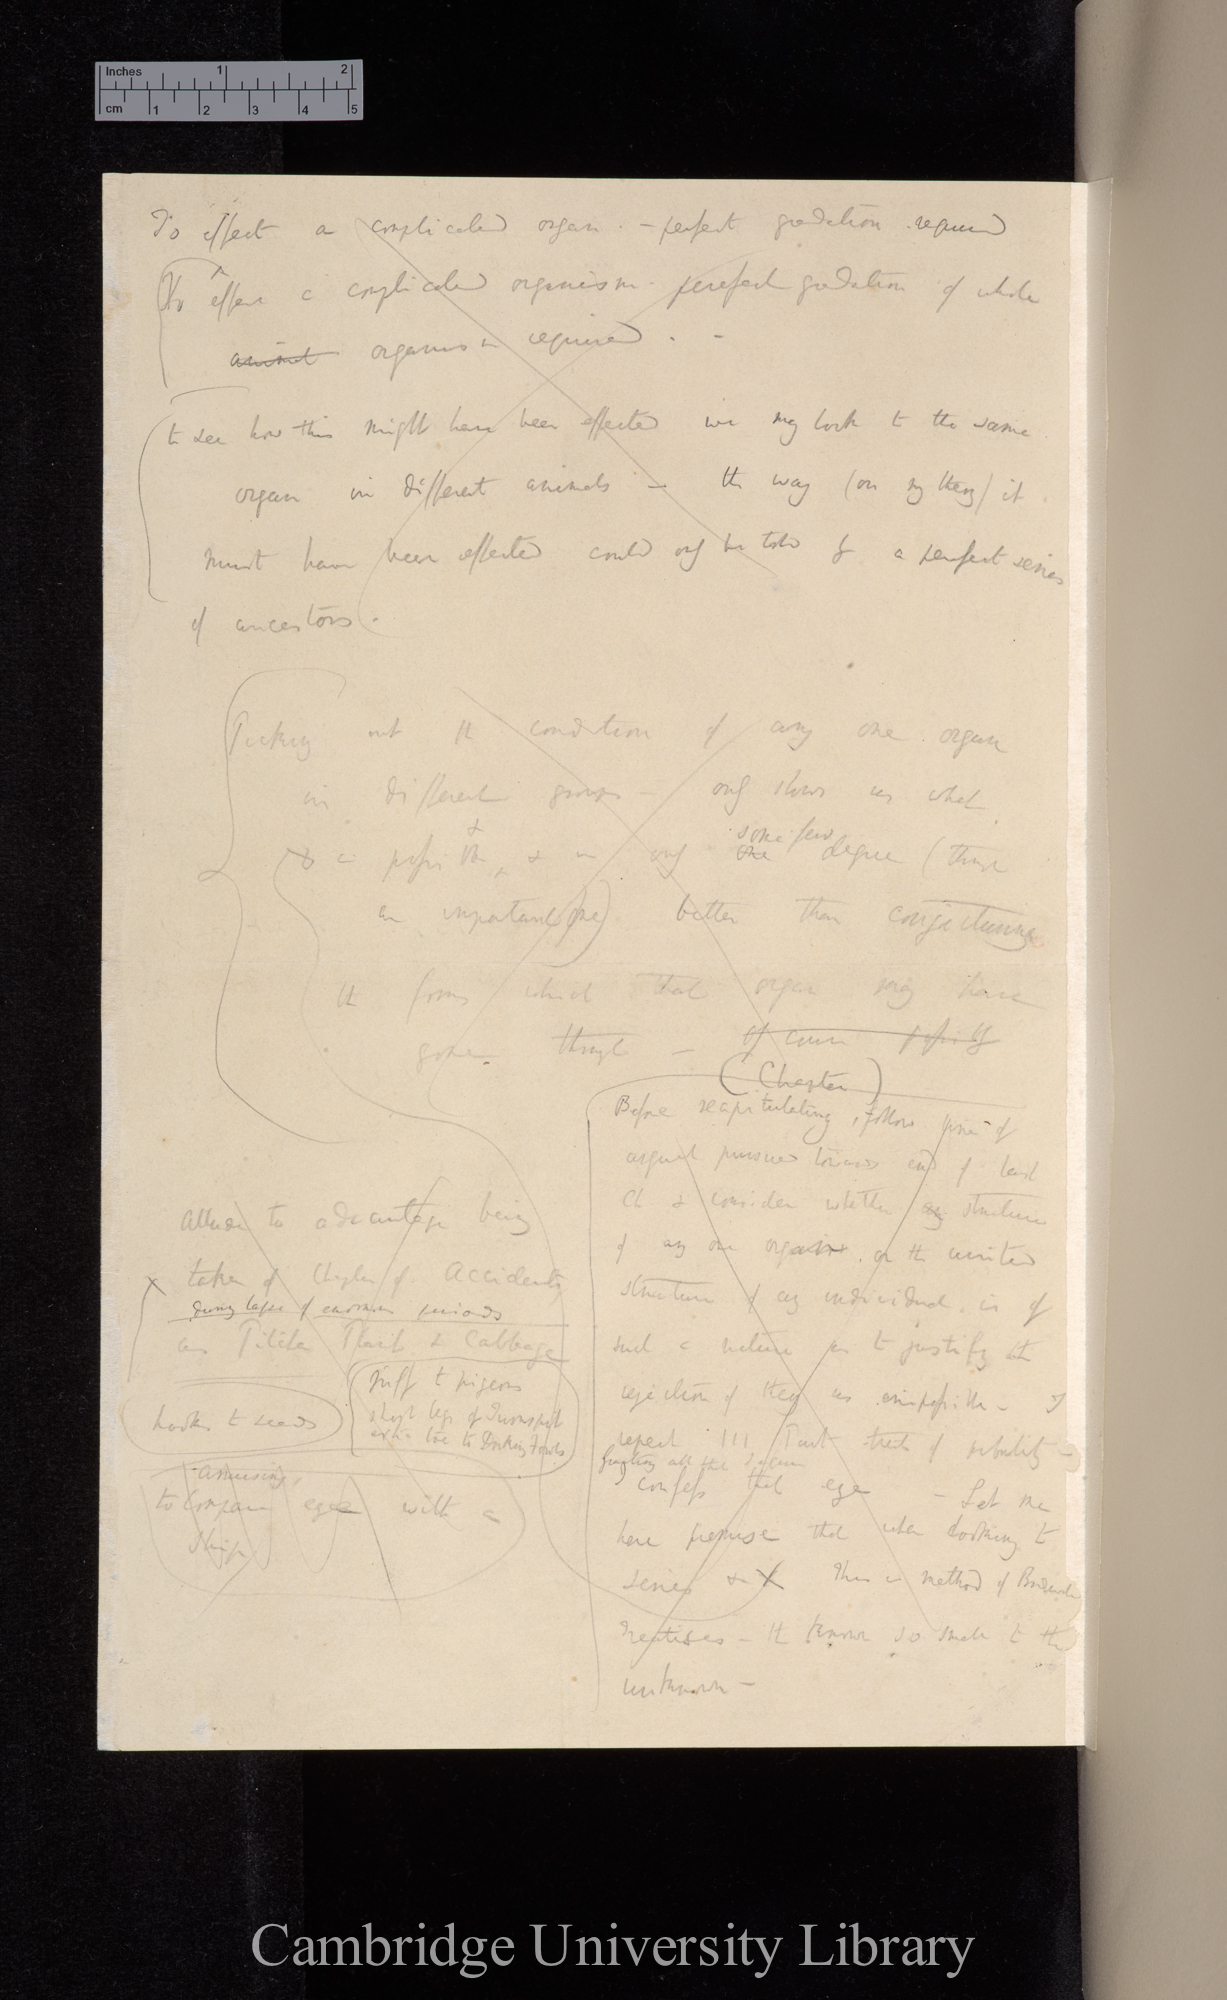 Inches 1 2
cm 1 2 3 4 5
To effect a complicated organ. — perfect gradation required
To effect a complicated organism. perfect gradation of whole
animal organism required. —
to see how this might have been effected we may look to the same
organ in different animals — the way (on my theory) it
must have been effected could only be told by a perfect series
of ancestors.
Picking out the condition of any one organ
in different groups — only shows us what
is possible, & in only one some few degree (though
an important one) better than conjecturing
the forms which that organ may have
gone through — Of course possibly
(Chapter)
Before recapitulating, follow line of
argument pursued towards end of last
Ch & consider whether any structure
of any one organ or the united
structure of any individual is of
such a nature as to justify the
rejection of theory as impossible — I
repeat !!! Part treats of probability —
I confess that eye — Let me
here premise that when looking to
series & X This is method of
Treatises — the known so small to the
unknown —
Allude to advantage being
taken of Chapter of Accidents
during lapse of enormous periods
as Pitcher Plant & Cabbage
hooks to seeds
ruff to pigeons
short legs of Turnspit
extra toe to Dorking Fowls
amusing
to compare eye with a
Ship
Cambridge University Library